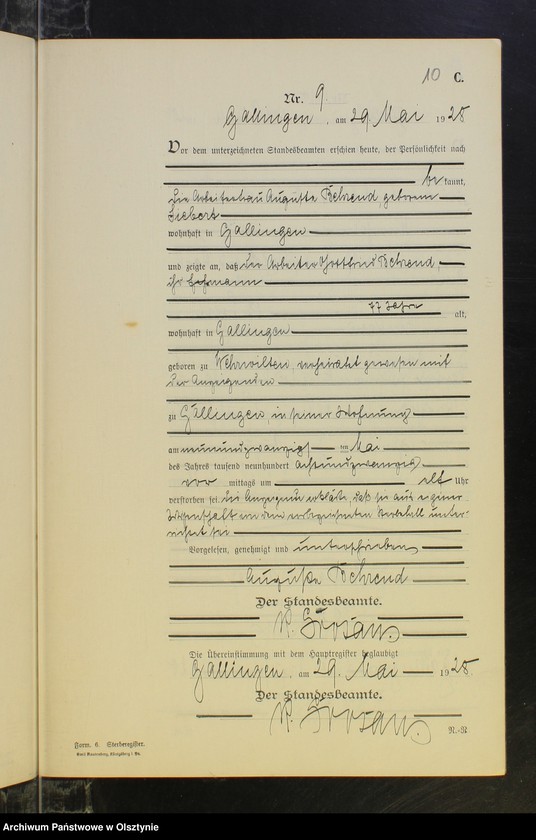 10 C.
Nr. 9.
Gallingen, am 29. Mai 1928
Vor dem unterzeichneten Standesbeamten erschien heute, der Persönlichkeit nach
bekannt,
die Arbeiterfrau Auguste Behrend, geborene
Siebert
wohnhaft in Gallingen
und zeigte an, daß der Arbeiter Gottlieb Behrend,
ihr Ehemann
77 Jahre alt,
wohnhaft in Gallingen
geboren zu Wehrwilten, verheiratet gewesen mit
der Anzeigenden
zu Gallingen, in seiner Wohnung
am neunundzwanzigsten Mai
des Jahres tausend neunhundert achtundzwanzig
vor mittags um elf Uhr
verstorben sei. Die Anzeigende erklärte, daß sie aus eigener
Wissenschaft von dem vorbezeichneten Sterbefall unter-
richtet sei
Vorgelesen, genehmigt und unterschrieben
Auguste Behrend
Der Standesbeamte.
Die Übereinstimmung mit dem Hauptregister beglaubigt
Gallingen, am 29. Mai 1928.
Der Standesbeamte.
R.-R
Form. C. Sterberegister.
Archiwum Państwowe w Olsztynie